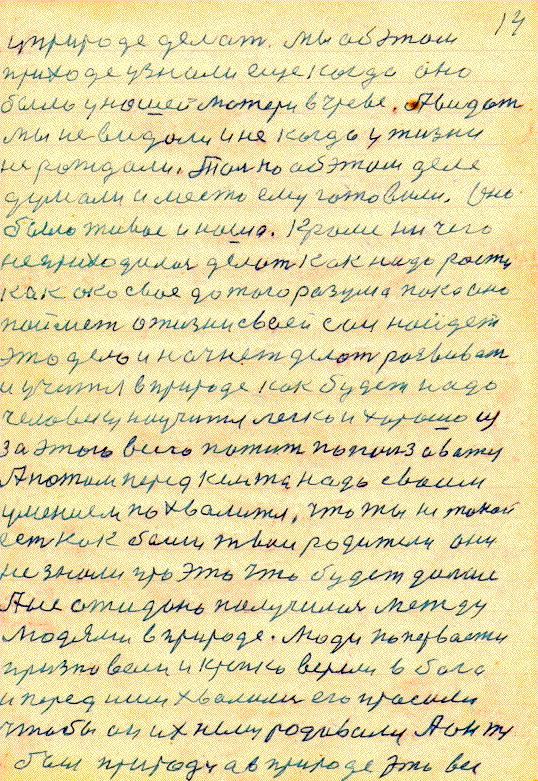 14
у природе делат. Мы об этом
приходе узнали еще когда оно
было у нашей матери в чреве. А видат
мы не видали и не когда у жизни
не рождали. Только об этом деле
думали и место ему готовили. Оно
было живое и наша. Кроме ни чего
не приходилося делат как надо рости
как око свое до того разума пока оно
поймет о жизни своей сам найдет
это дело и начнет делат розвиват
и учится в природе как будет надо
человеку научится легко и хорошо из
за этого всего потит попользоватц
А потом перед кем та надо своим
умением похвалится, что ты не такой
ест как были твои родители они
не знали что это что будет дальше
А не ожидано получилося между
людями в природе. Люди по первасти
признавали и крепко верели в бога
и перед ним хвалили его прасили
чтобы он их нему родовали А он ту
был природу а в природе это все